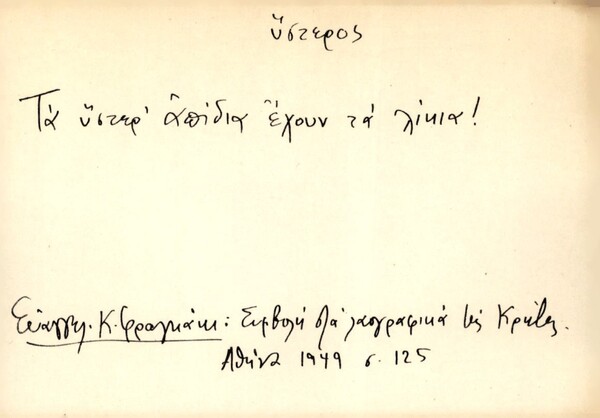 ὕστερος
Τά ὕστερ' ἀπίδια ἔχουν τά λίκια!
Εὐαγγελ. Κ. Φραγκάκι: Συμβολή στά λαογραφικά τῆς Κρήτης.
Ἀθήνα 1949 σ. 125